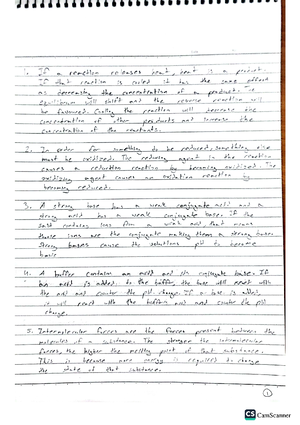 1. If a reaction releases heat, heat is a product.
If that reaction is cooled it has the same effect
as decreasing the concentration of a product. The
equilibrium will shift and the reverse reaction will
be favoured. Cooling the reaction will decrease the
concentration of other products and increase the
concentration of the reactants.
2. In order for something to be reduced, something else
must be oxidized. The reducing agent in the reaction
causes a reduction reaction by becoming oxidised. The
oxidizing agent causes an oxidation reaction by
becoming reduced.
3. A strong base has a weak conjugate acid and a
strong acid has a weak conjugate base. If the
salt contains ions from a weak acid that means
those ions are the conjugate making them a strong base.
Strong bases cause the solutions pH to become
basic
4. A buffer contains an acid and its conjugate base. If
an acid is added to the buffer, the base will react with
the acid and counter the pH change. If a base is added,
it will react with the buffers acid and counter the pH
change.
5. Intermolecular forces are the forces present between the
molecules of a substance. The stronger the intermolecular
forces, the higher the melting point of that substance.
This is because more energy is required to change
the state of that substance.
1
CS CamScanner